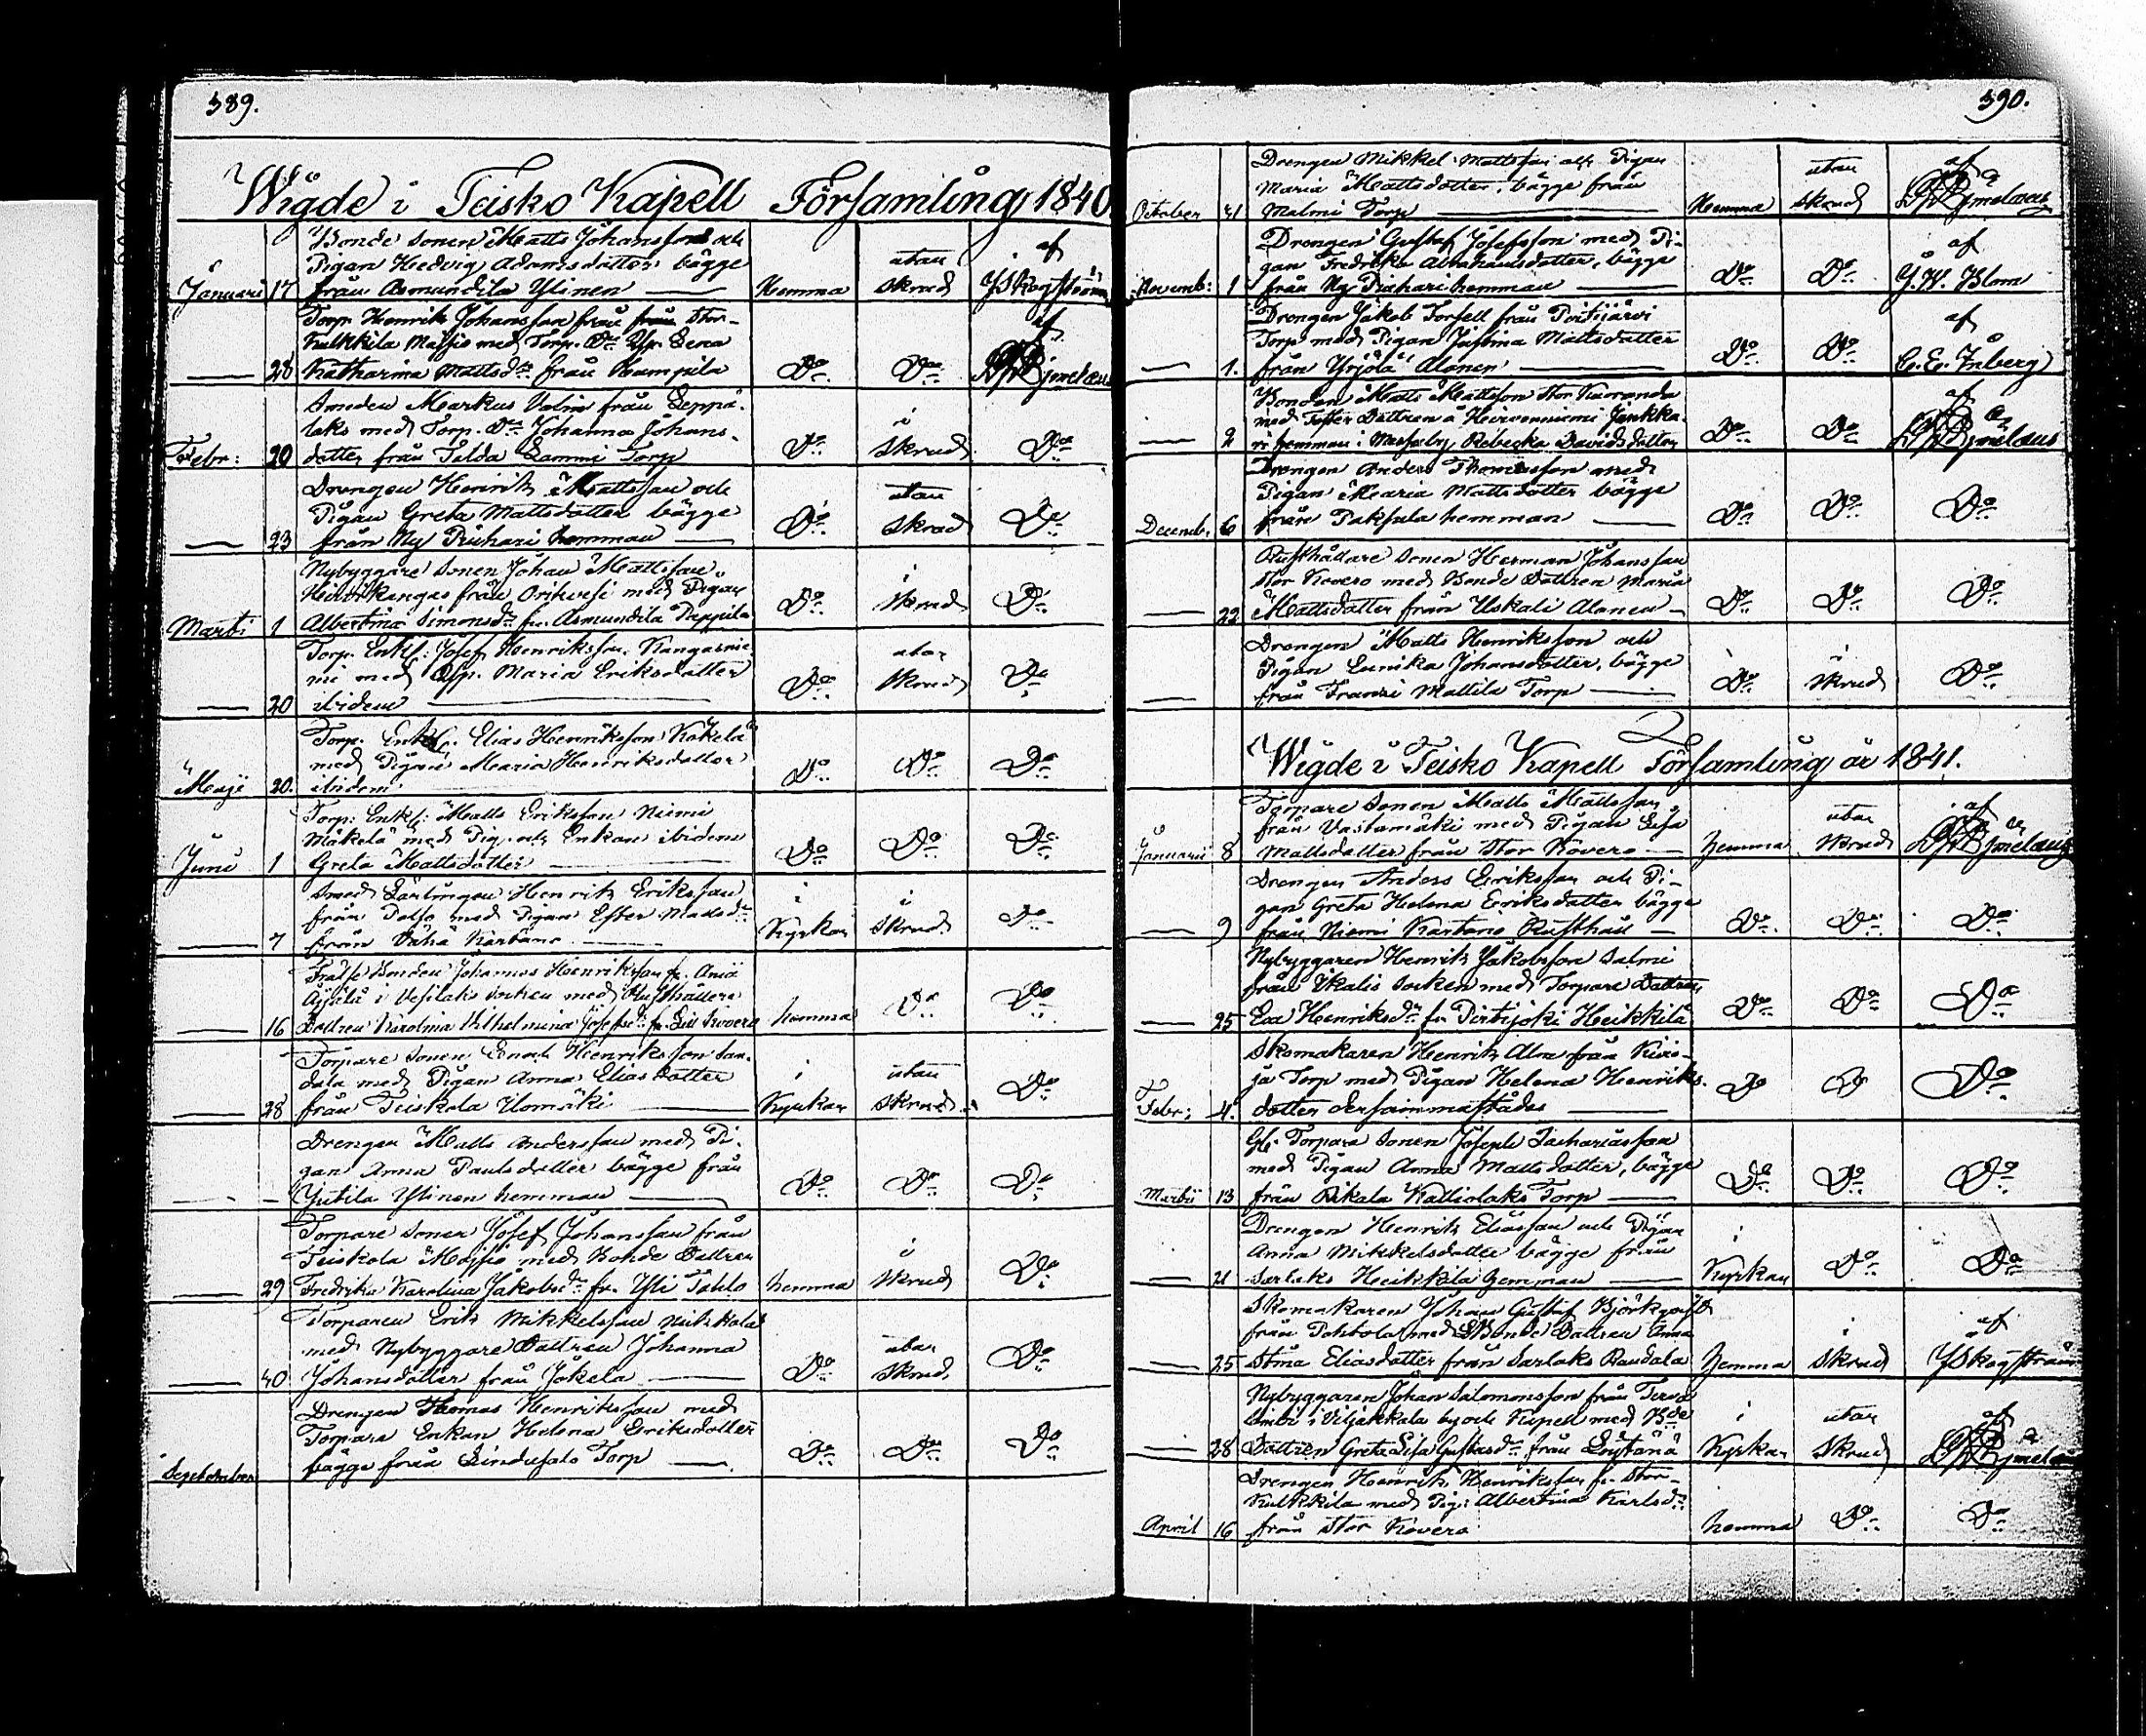 389.
Wigde i Teisko Kapell Församling 1840.
Bonde Sonen Matts Johansson och
Pigan Hedvig Adamsdotter bägge utan af
Januari 17 från Asmundila Ylinen Hemma skrud J Skogström
Torp. Henrik Johansson från från Stor-
Kulkkila Maijio med Torp. Dr. Yp. Lena af
28 Katharina Mattsdr från Do Do
Smeden Markus Valin från Leppä-
laks med Torp. Dr. Johanna Johans- i
Febr: 20 dotter från Lammi Torp Do skrud Do
Drengen Henrik Mattsson och
Pigan Greta Mattsdotter bägge utan
23 från Ny Pirhari hemman Do skrud Do
Nybyggare Sonen Johan Mattsson
från Orihvesi med Pigan i
Marti 1 Albertina Simonsdr fr. Asmundila Pappila Do skrud Do
Torp. Enkl: Josef Henriksson Kangasnie-
mi med Yp. Maria Eriksdotter utan
20 ibidem Do skrud Do
Torp. Enkl: Elias Henriksson Kokela
med Pigan Maria Henriksdotter
Maji 20. ibidem Do Do Do
Torp: Enkl: Matts Eriksson Niemi
Mäkelä med Pig. och Enkan ibidem
Juni 1 Greta Mattsdotter Do Do Do
Smeds Lärlingen Henrik Eriksson i i
från med Pigan Ester Mattsdr
7 från Vähä Kartano Kyrkan skrud Do
Frälse Bonden Johannes Henriksson fr.
i Vesilaks Socken med Rusthållare
16 Dottren Karolina Wilhelmina Josefsdr fr. Lill Kovero hemma Do Do
Torpare Sonen Enoch Henriksson
med Pigan Anna Elias dotter i utan
28 från Teiskola Ilomäki Kyrkan skrud Do
Drengen Matts Andersson med Pi-
gan Anna Paulsdotter bägge från
Jutila Ylinen hemman Do Do Do
Torpare Sonen Josef Johansson från
Teiskola Maijio med Bonde Dottren i
29 Fredrika Karolina Jakobsdr fr. Yli Pohlo hemma skrud Do
Torparen Erik Mikkelsson
med Nybyggare Dottren Johanna utan
40 Johansdotter från Jokela Do skrud Do
Drengen Thomas Henriksson med
Torpare Enkan Helena Eriksdotter
September bägge från Lindufals Torp Do Do Do
390.
Drengen Mikkel Mattsson och Pigan
Maria Mattsdotter, bägge från utan af
October 21 Malmi Torp Hemma skrud
Drengen Gustaf Josefsson med Pi-
gan Fredrika Abrahamsdotter, bägge af
Novemb: 1 från Ny Pirhari hemman Do Do J. W. Blom
Drengen Jakob Forsell från Poitijärvi
Torp med Pigan Justina Mattsdotter af
1. från Yrjölä Alonen Do Do C. E. Inberg
Bonden Matts Mattsson Stor
med Foster Dottren å Heinoniemi
2 hemman i Rebecka Davidsdotter Do Do
Drengen Anders Thomasson med
Pigan Maria Mattsdotter bägge
Decemb. 6 från Paksula hemman Do Do Do
Rusthållare Sonen Herman Johansson
Stor Kovero med Bonde Dottren Maria
22 Mattsdotter från Uskali Alonen Do Do Do
Drengen Matts Henriksson och
Pigan Eenika Johansdotter, bägge i
från Fransi Mattila Torp Do skrud Do
Wigde i Teisko Kapell Församling år 1841.
Torpare Sonen Matts Mattsson af
från Vastamäki med Pigan Lisa utan
Januarii 8 Mattsdotter från Stor Kovero hemma skrud
Drengen Anders Eriksson och Pi-
gan Greta Helena Eriksdotter bägge
9 från Niemi Kartano Rusthåll Do Do Do
Nybyggaren Henrik Jakobsson Salmi
från Ikalis Socken med Torpare Dottren
25 Eva Henriksdr fr. Pirtijoki Heikkilä Do Do Do
Skomakaren Henrik Alm från Kivio-
ja Torp med Pigan Helena Henriks-
Febr: 4. dotter dersammastädes Do Do Do
Torpare Sonen Joseph Zachariasson
med Pigan Anna Mattsdotter, bägge
Martii 13 från Rikala Kalliolaks Torp Do Do Do
Drengen Henrik Eliasson och Pigan i
Anna Mikkelsdotter bägge från
21 Sarlaks Heikkila hemman Kyrkan Do Do
Skomakaren Johan Gustaf Björkqvist af
från Pohtola med Bonde Dottren Anna i
25 Stina Eliasdotter från Sarlaks Raudala hemma skrud J Skogström
Nybyggaren Johan Salomonsson från
i Viljakkala by och Kapell med Bde i utan af
28 Dottren Greta Lisa Gustafsdr från Kyrkan skrud
Drengen Henrik Henriksson fr. Stor-
Kulkkila med Pig: Albertina Karlsdr
April 16 från Stor Kovero hemma Do Do